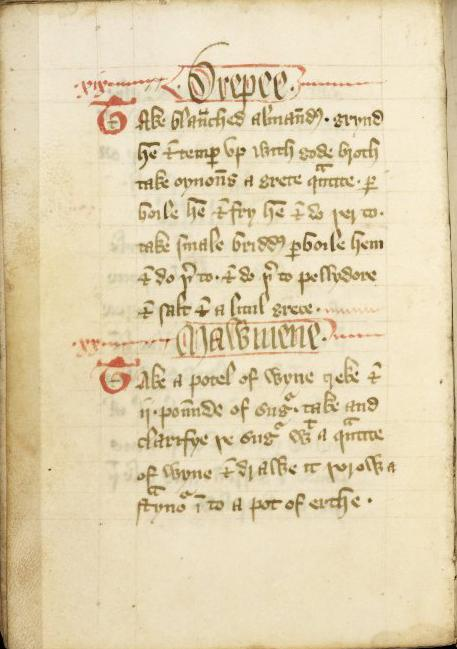 .xix. Drepee.
Take blan̄ched alman̄d⁹ . grynd
hē & temꝑ vp with gode broth
take oynon̄s a grete qᵃntite . ꝑ
boile hē & fry hē & do þer to .
take smale bridd⁹ ꝑboile hem
& do þ̉ to . & do þ̉ to pellydore
& salt & a litul grece .
.xx. Mawmene .
Take a potel of wyne greke &
ii . poun̄de of sugʳ . take and
clarifye þe sugʳ wᵗ a qᵃntite
of wyne & drawe it þorow a
stᵃynoʳ ī to a pot of erthe .